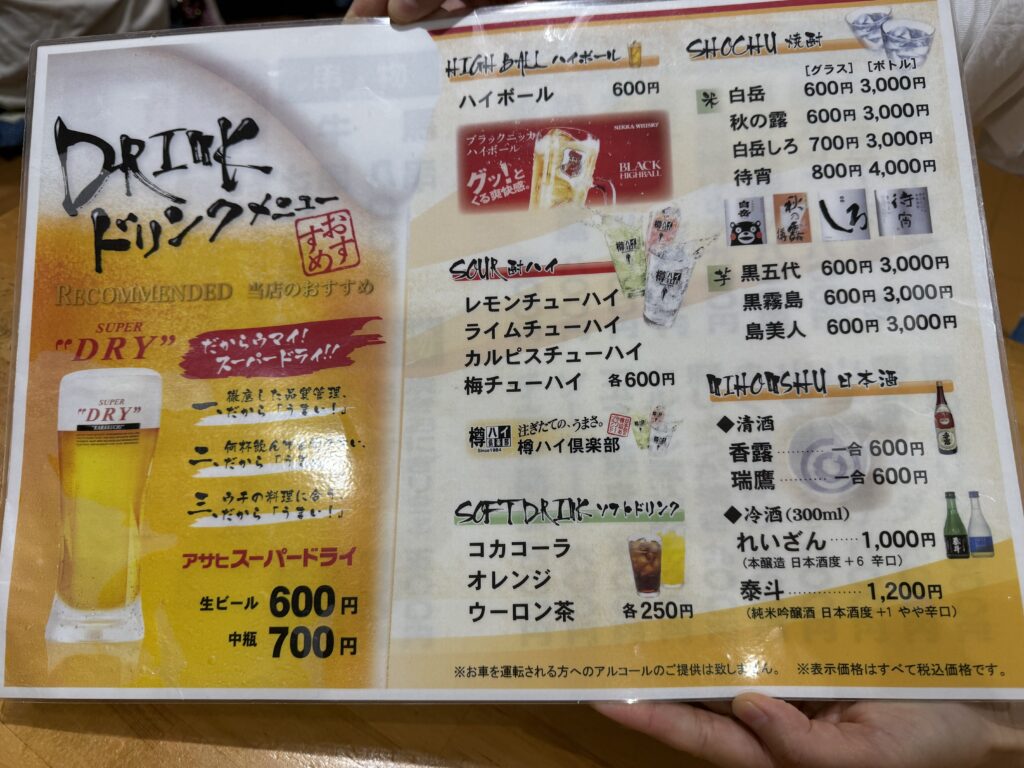 DRINK
ドリンクメニュー
おすすめ
RECOMMENDED 当店のおすすめ
SUPER
"DRY"
だからウマイ!
スーパードライ!!
SUPER
"DRY"
一、徹底した品質管理、
だから「うまい!」
二、
だから「うまい!」
三、ウチの料理に合う、
だから「うまい!」
アサヒスーパードライ
生ビール 600円
中瓶 700円
HIGH BALL ハイボール
ハイボール 600円
ブラックニッカ
ハイボール
NIKKA WHISKY
グッ!と
くる爽快感。
BLACK
HIGHBALL
SOUR 酎ハイ
レモンチューハイ
ライムチューハイ
カルピスチューハイ
梅チューハイ 各600円
樽ハイ
Since1984
注ぎたての、うまさ。
樽ハイ倶楽部
SOFT DRINK ソフトドリンク
コカコーラ
オレンジ
ウーロン茶 各250円
SHOCHU 焼酎
[グラス] [ボトル]
米 白岳 600円 3,000円
秋の露 600円 3,000円
白岳しろ 700円 3,000円
待宵 800円 4,000円
白岳 秋の露 しろ 待宵
芋 黒五代 600円 3,000円
黒霧島 600円 3,000円
島美人 600円 3,000円
NIHONSHU 日本酒
◆清酒
香露………一合 600円
瑞鷹………一合 600円
◆冷酒(300ml)
れいざん……1,000円
(本醸造 日本酒度+6 辛口)
泰斗……………1,200円
(純米吟醸酒 日本酒度+1 やや辛口)
※お車を運転される方へのアルコールのご提供は致しません。 ※表示価格はすべて税込価格です。